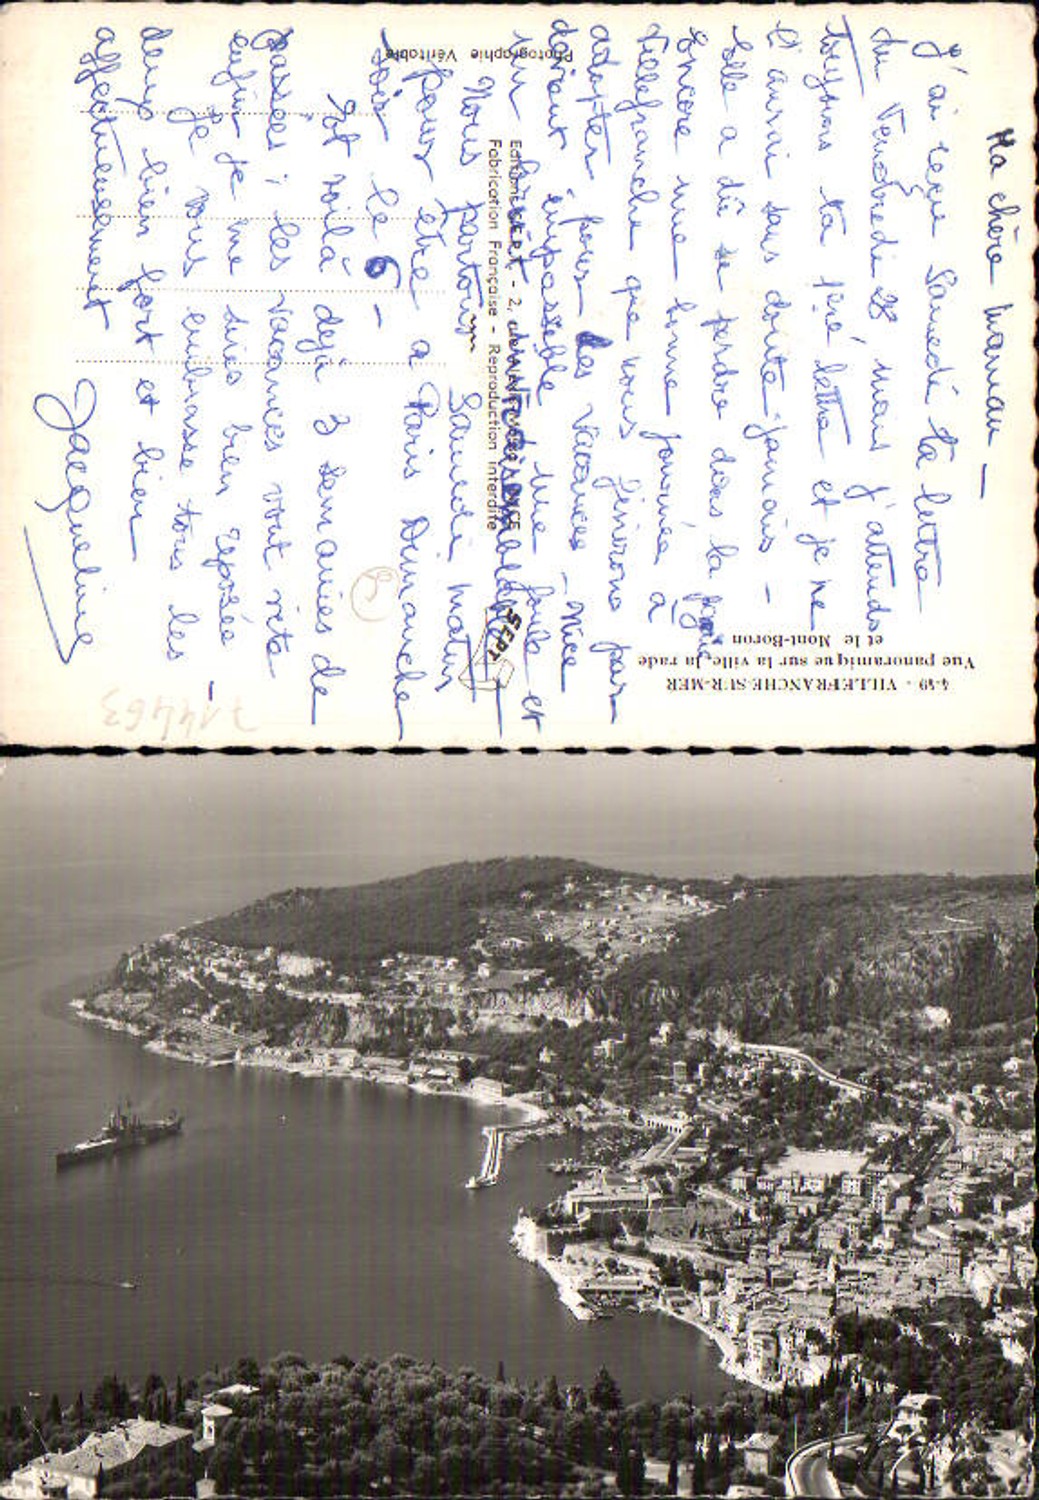 Ma chère maman -
J'ai reçu Samedi ta lettre
du Vendredi 28 mais j'attends
toujours ta 1ère lettre et je ne
l'aurai sans doute jamais -
Elle a dû se perdre dans la
Encore une bonne journée à
Villefranche que nous finirons par
adopter pour les vacances - Nice
devient impossible une foule et
un
Nous partons Samedi matin
pour être à Paris Dimanche
soir le 6 -
Et voilà déjà 3 semaines de
passées ; les vacances vont vite
enfin je me suis bien reposée -
Je vous embrasse tous les
deux bien fort et bien
affectueusement
Jacqueline
4-49 - VILLEFRANCHE-SUR-MER
Vue panoramique sur la ville, la rade
et le Mont-Boron
Photographie Véritable
Fabrication Française - Reproduction Interdite
SEPT
714463